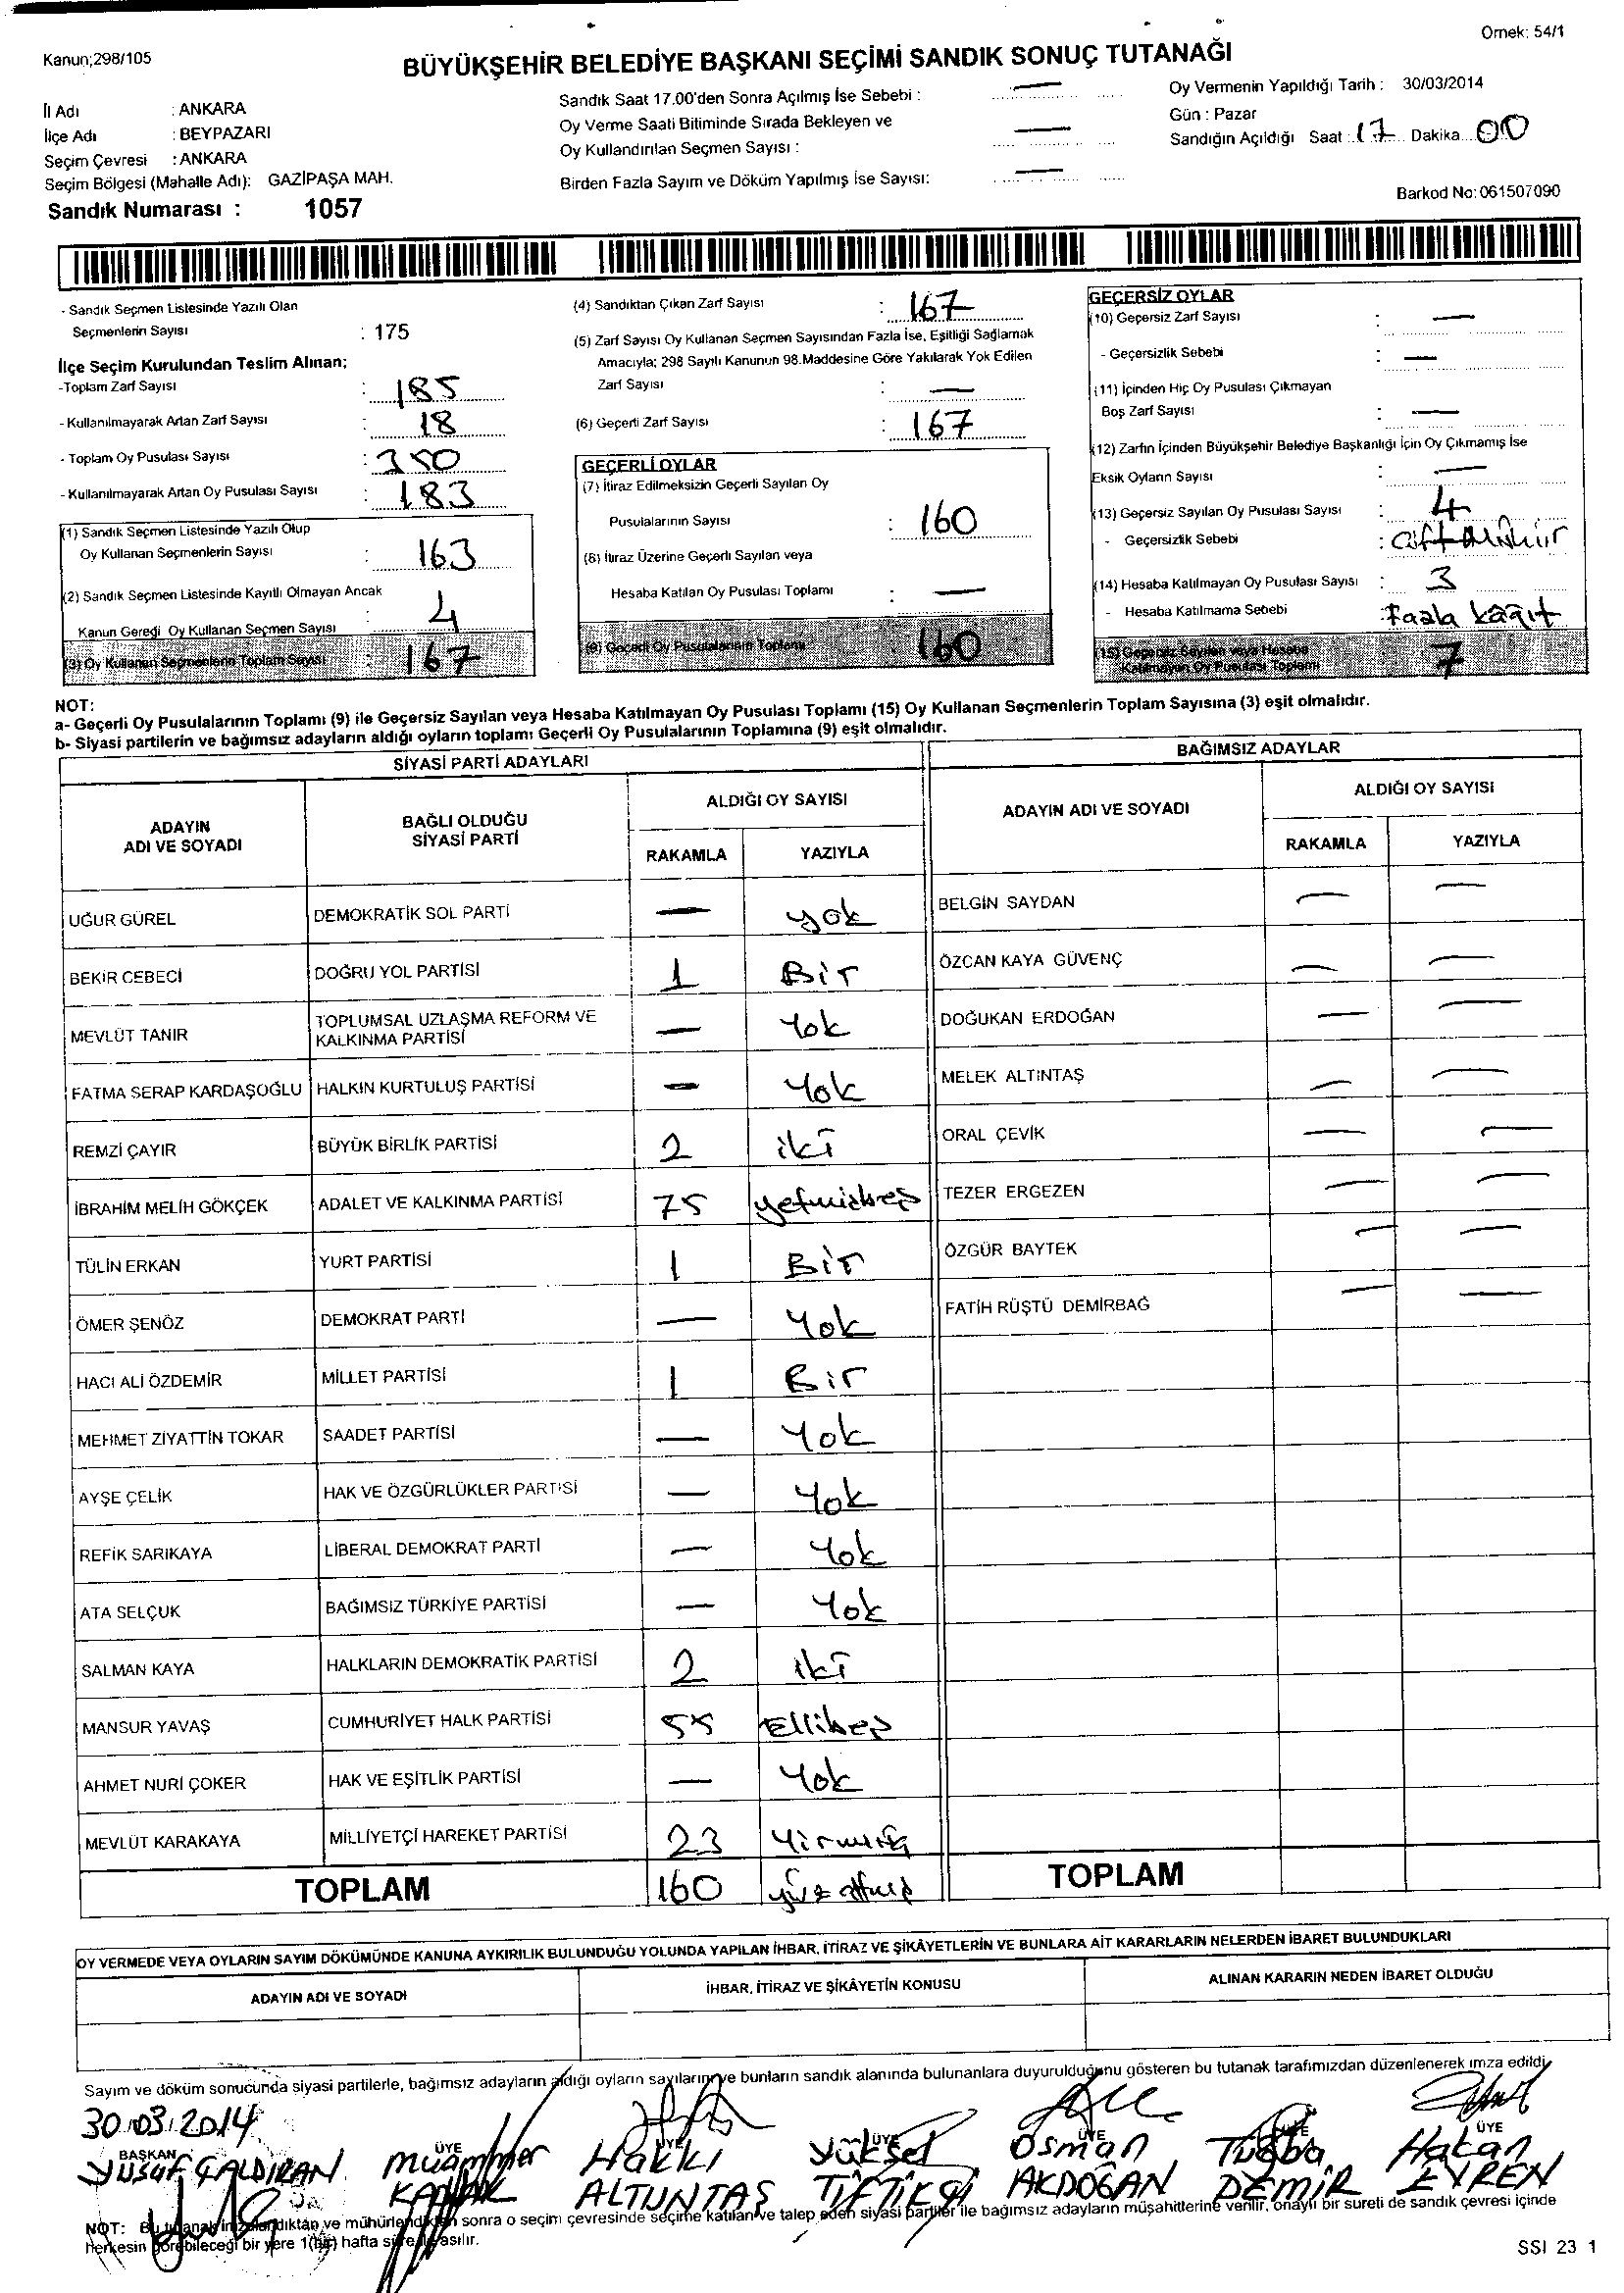 Kanun;298/105
Örnek: 54/1
BÜYÜKŞEHİR BELEDİYE BAŞKANI SEÇİMİ SANDIK SONUÇ TUTANAĞI
İl Adı : ANKARA
İlçe Adı : BEYPAZARI
Seçim Çevresi : ANKARA
Seçim Bölgesi (Mahalle Adı): GAZİPAŞA MAH.
Sandık Numarası : 1057
Sandık Saat 17.00'den Sonra Açılmış İse Sebebi : —
Oy Verme Saati Bitiminde Sırada Bekleyen ve
Oy Kullandırılan Seçmen Sayısı : —
Birden Fazla Sayım ve Döküm Yapılmış İse Sayısı: —
Oy Vermenin Yapıldığı Tarih : 30/03/2014
Gün : Pazar
Sandığın Açıldığı Saat : 17 Dakika 00
Barkod No: 061507090
- Sandık Seçmen Listesinde Yazılı Olan
Seçmenlerin Sayısı : 175
İlçe Seçim Kurulundan Teslim Alınan;
-Toplam Zarf Sayısı : 185
- Kullanılmayarak Artan Zarf Sayısı : 18
- Toplam Oy Pusulası Sayısı : 350
- Kullanılmayarak Artan Oy Pusulası Sayısı : 183
(1) Sandık Seçmen Listesinde Yazılı Olup
Oy Kullanan Seçmenlerin Sayısı : 163
(2) Sandık Seçmen Listesinde Kayıtlı Olmayan Ancak
Kanun Gereği Oy Kullanan Seçmen Sayısı : 4
(3) Oy Kullanan Seçmenlerin Toplam Sayısı : 167
(4) Sandıktan Çıkan Zarf Sayısı : 167
(5) Zarf Sayısı Oy Kullanan Seçmen Sayısından Fazla İse, Eşitliği Sağlamak
Amacıyla; 298 Sayılı Kanunun 98.Maddesine Göre Yakılarak Yok Edilen
Zarf Sayısı : —
(6) Geçerli Zarf Sayısı : 167
GEÇERLİ OYLAR
(7) İtiraz Edilmeksizin Geçerli Sayılan Oy
Pusulalarının Sayısı : 160
(8) İtiraz Üzerine Geçerli Sayılan veya
Hesaba Katılan Oy Pusulası Toplamı : —
(9) Geçerli Oy Pusulalarının Toplamı : 160
GEÇERSİZ OYLAR
(10) Geçersiz Zarf Sayısı : —
- Geçersizlik Sebebi : —
(11) İçinden Hiç Oy Pusulası Çıkmayan
Boş Zarf Sayısı : —
(12) Zarfın İçinden Büyükşehir Belediye Başkanlığı İçin Oy Çıkmamış İse
Eksik Oyların Sayısı : —
(13) Geçersiz Sayılan Oy Pusulası Sayısı : 4
- Geçersizlik Sebebi : Çift Mühür
(14) Hesaba Katılmayan Oy Pusulası Sayısı : 3
- Hesaba Katılmama Sebebi : Fazla kâğıt
(15) Geçersiz Sayılan veya Hesaba
Katılmayan Oy Pusulası Toplamı 7
NOT:
a- Geçerli Oy Pusulalarının Toplamı (9) ile Geçersiz Sayılan veya Hesaba Katılmayan Oy Pusulası Toplamı (15) Oy Kullanan Seçmenlerin Toplam Sayısına (3) eşit olmalıdır.
b- Siyasi partilerin ve bağımsız adayların aldığı oyların toplamı Geçerli Oy Pusulalarının Toplamına (9) eşit olmalıdır.
SİYASİ PARTİ ADAYLARI
ADAYIN ADI VE SOYADI
BAĞLI OLDUĞU SİYASİ PARTİ
ALDIĞI OY SAYISI
RAKAMLA YAZIYLA
UĞUR GÜREL DEMOKRATİK SOL PARTİ — yok
BEKİR CEBECİ DOĞRU YOL PARTİSİ 1 Bir
MEVLÜT TANIR TOPLUMSAL UZLAŞMA REFORM VE KALKINMA PARTİSİ — Yok
FATMA SERAP KARDAŞOĞLU HALKIN KURTULUŞ PARTİSİ — Yok
REMZİ ÇAYIR BÜYÜK BİRLİK PARTİSİ 2 iki
İBRAHİM MELİH GÖKÇEK ADALET VE KALKINMA PARTİSİ 75 yetmişbeş
TÜLİN ERKAN YURT PARTİSİ 1 Bir
ÖMER ŞENÖZ DEMOKRAT PARTİ — Yok
HACI ALİ ÖZDEMİR MİLLET PARTİSİ 1 Bir
MEHMET ZİYATTİN TOKAR SAADET PARTİSİ — Yok
AYŞE ÇELİK HAK VE ÖZGÜRLÜKLER PARTİSİ — Yok
REFİK SARIKAYA LİBERAL DEMOKRAT PARTİ — Yok
ATA SELÇUK BAĞIMSIZ TÜRKİYE PARTİSİ — Yok
SALMAN KAYA HALKLARIN DEMOKRATİK PARTİSİ 2 iki
MANSUR YAVAŞ CUMHURİYET HALK PARTİSİ 55 Ellibeş
AHMET NURİ ÇOKER HAK VE EŞİTLİK PARTİSİ — Yok
MEVLÜT KARAKAYA MİLLİYETÇİ HAREKET PARTİSİ 23 Yirmiüç
TOPLAM 160 yüz altmış
BAĞIMSIZ ADAYLAR
ADAYIN ADI VE SOYADI
ALDIĞI OY SAYISI
RAKAMLA YAZIYLA
BELGİN SAYDAN — —
ÖZCAN KAYA GÜVENÇ — —
DOĞUKAN ERDOĞAN — —
MELEK ALTINTAŞ — —
ORAL ÇEVİK — —
TEZER ERGEZEN — —
ÖZGÜR BAYTEK — —
FATİH RÜŞTÜ DEMİRBAĞ — —
TOPLAM
OY VERMEDE VEYA OYLARIN SAYIM DÖKÜMÜNDE KANUNA AYKIRILIK BULUNDUĞU YOLUNDA YAPILAN İHBAR, İTİRAZ VE ŞİKÂYETLERİN VE BUNLARA AİT KARARLARIN NELERDEN İBARET BULUNDUKLARI
ADAYIN ADI VE SOYADI İHBAR, İTİRAZ VE ŞİKÂYETİN KONUSU ALINAN KARARIN NEDEN İBARET OLDUĞU
Sayım ve döküm sonucunda siyasi partilerle, bağımsız adayların aldığı oyların sayılarını ve bunların sandık alanında bulunanlara duyurulduğunu gösteren bu tutanak tarafımızdan düzenlenerek imza edildi.
30.03.2014
BAŞKAN ÜYE ÜYE ÜYE ÜYE ÜYE ÜYE
Yusuf ÇALDIRAN Muammer Hakkı Yüksel Osman Tuğba Hakan
ALTUNTAŞ TİFTİKÇİ AKDOĞAN DEMİR EVREN
NOT: Bu tutanak imzalandıktan ve mühürlendikten sonra o seçim çevresinde seçime katılan ve talep eden siyasi partiler ile bağımsız adayların müşahitlerine verilir, onaylı bir sureti de sandık çevresi içinde
herkesin görebileceği bir yere 1(bir) hafta süreyle asılır.
SSI 23 1